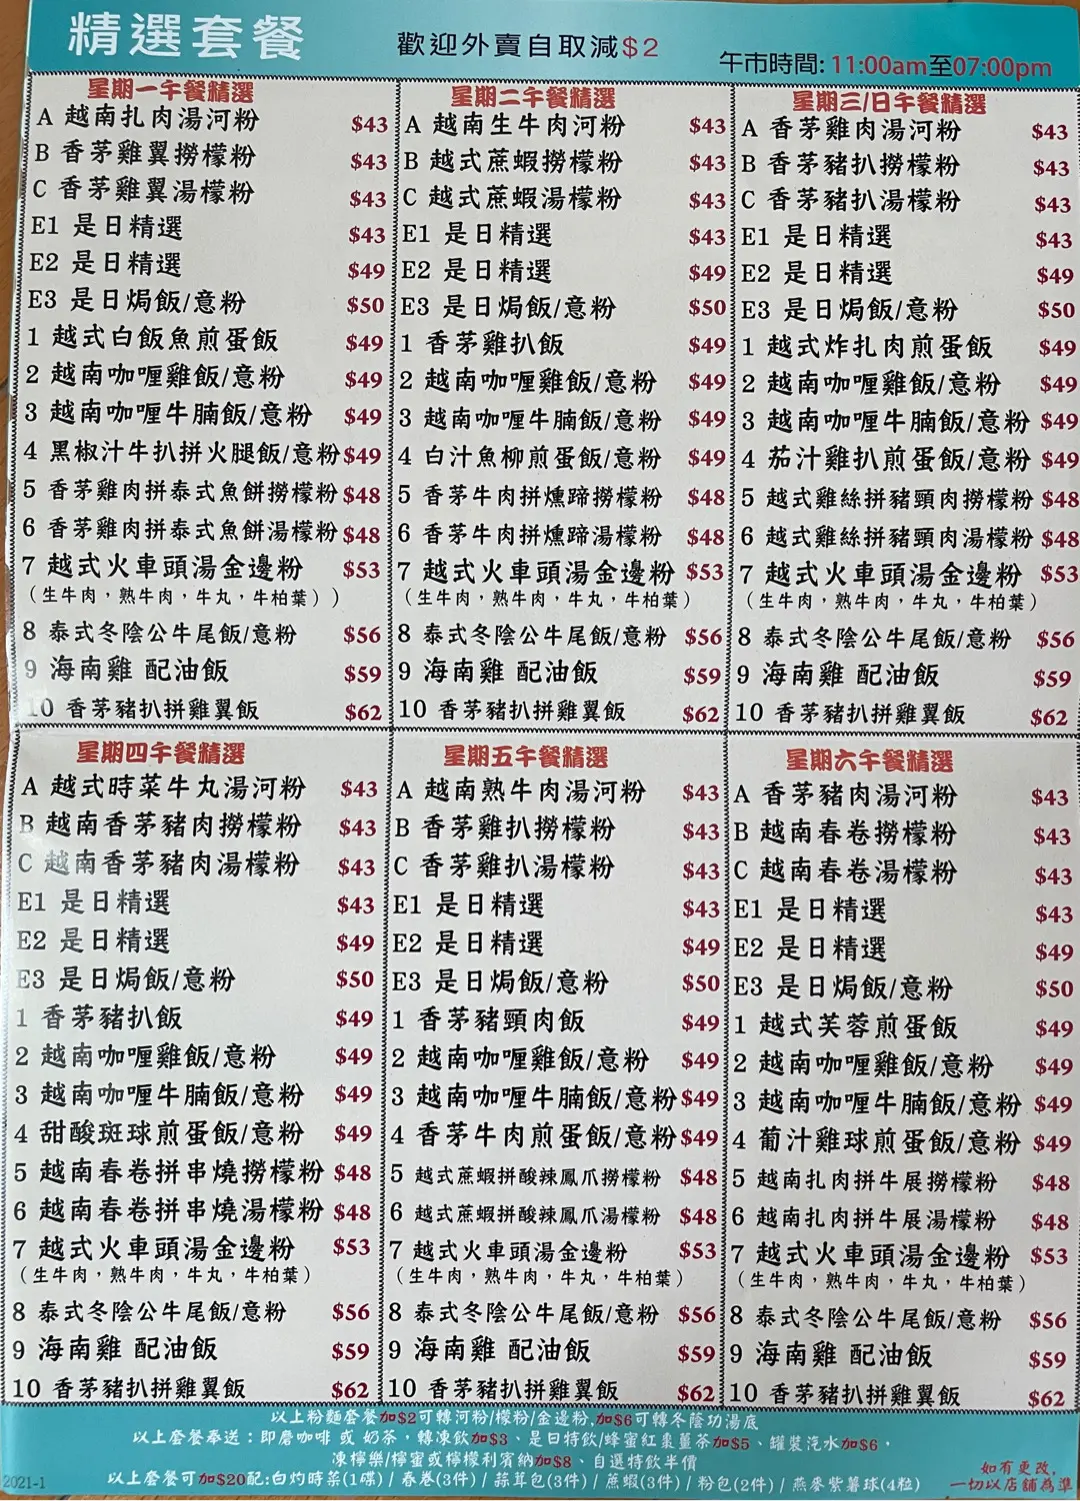 精選套餐
歡迎外賣自取減$2
午市時間: 11:00am至07:00pm
星期一午餐精選
A 越南扎肉湯河粉 $43
B 香茅雞翼撈檬粉 $43
C 香茅雞翼湯檬粉 $43
E1 是日精選 $43
E2 是日精選 $49
E3 是日焗飯/意粉 $50
1 越式白飯魚煎蛋飯 $49
2 越南咖喱雞飯/意粉 $49
3 越南咖喱牛腩飯/意粉 $49
4 黑椒汁牛扒拼火腿飯/意粉 $49
5 香茅雞肉拼泰式魚餅撈檬粉 $48
6 香茅雞肉拼泰式魚餅湯檬粉 $48
7 越式火車頭湯金邊粉 $53
（生牛肉，熟牛肉，牛丸，牛柏葉））
8 泰式冬陰公牛尾飯/意粉 $56
9 海南雞 配油飯 $59
10 香茅豬扒拼雞翼飯 $62
星期二午餐精選
A 越南生牛肉河粉 $43
B 越式蔗蝦撈檬粉 $43
C 越式蔗蝦湯檬粉 $43
E1 是日精選 $43
E2 是日精選 $49
E3 是日焗飯/意粉 $50
1 香茅雞扒飯 $49
2 越南咖喱雞飯/意粉 $49
3 越南咖喱牛腩飯/意粉 $49
4 白汁魚柳煎蛋飯/意粉 $49
5 香茅牛肉拼燻蹄撈檬粉 $48
6 香茅牛肉拼燻蹄湯檬粉 $48
7 越式火車頭湯金邊粉 $53
（生牛肉，熟牛肉，牛丸，牛柏葉）
8 泰式冬陰公牛尾飯/意粉 $56
9 海南雞 配油飯 $59
10 香茅豬扒拼雞翼飯 $62
星期三/日午餐精選
A 香茅雞肉湯河粉 $43
B 香茅豬扒撈檬粉 $43
C 香茅豬扒湯檬粉 $43
E1 是日精選 $43
E2 是日精選 $49
E3 是日焗飯/意粉 $50
1 越式炸扎肉煎蛋飯 $49
2 越南咖喱雞飯/意粉 $49
3 越南咖喱牛腩飯/意粉 $49
4 茄汁雞扒煎蛋飯/意粉 $49
5 越式雞絲拼豬頸肉撈檬粉 $48
6 越式雞絲拼豬頸肉湯檬粉 $48
7 越式火車頭湯金邊粉 $53
（生牛肉，熟牛肉，牛丸，牛柏葉）
8 泰式冬陰公牛尾飯/意粉 $56
9 海南雞 配油飯 $59
10 香茅豬扒拼雞翼飯 $62
星期四午餐精選
A 越式時菜牛丸湯河粉 $43
B 越南香茅豬肉撈檬粉 $43
C 越南香茅豬肉湯檬粉 $43
E1 是日精選 $43
E2 是日精選 $49
E3 是日焗飯/意粉 $50
1 香茅豬扒飯 $49
2 越南咖喱雞飯/意粉 $49
3 越南咖喱牛腩飯/意粉 $49
4 甜酸斑球煎蛋飯/意粉 $49
5 越南春卷拼串燒撈檬粉 $48
6 越南春卷拼串燒湯檬粉 $48
7 越式火車頭湯金邊粉 $53
（生牛肉，熟牛肉，牛丸，牛柏葉）
8 泰式冬陰公牛尾飯/意粉 $56
9 海南雞 配油飯 $59
10 香茅豬扒拼雞翼飯 $62
星期五午餐精選
A 越南熟牛肉湯河粉 $43
B 香茅雞扒撈檬粉 $43
C 香茅雞扒湯檬粉 $43
E1 是日精選 $43
E2 是日精選 $49
E3 是日焗飯/意粉 $50
1 香茅豬頸肉飯 $49
2 越南咖喱雞飯/意粉 $49
3 越南咖喱牛腩飯/意粉 $49
4 香茅牛肉煎蛋飯/意粉 $49
5 越式蔗蝦拼酸辣鳳爪撈檬粉 $48
6 越式蔗蝦拼酸辣鳳爪湯檬粉 $48
7 越式火車頭湯金邊粉 $53
（生牛肉，熟牛肉，牛丸，牛柏葉）
8 泰式冬陰公牛尾飯/意粉 $56
9 海南雞 配油飯 $59
10 香茅豬扒拼雞翼飯 $62
星期六午餐精選
A 香茅豬肉湯河粉 $43
B 越南春卷撈檬粉 $43
C 越南春卷湯檬粉 $43
E1 是日精選 $43
E2 是日精選 $49
E3 是日焗飯/意粉 $50
1 越式芙蓉煎蛋飯 $49
2 越南咖喱雞飯/意粉 $49
3 越南咖喱牛腩飯/意粉 $49
4 葡汁雞球煎蛋飯/意粉 $49
5 越南扎肉拼牛展撈檬粉 $48
6 越南扎肉拼牛展湯檬粉 $48
7 越式火車頭湯金邊粉 $53
（生牛肉，熟牛肉，牛丸，牛柏葉）
8 泰式冬陰公牛尾飯/意粉 $56
9 海南雞 配油飯 $59
10 香茅豬扒拼雞翼飯 $62
以上粉麵套餐加$2可轉河粉/檬粉/金邊粉,加$6可轉冬陰功湯底
以上套餐奉送：即磨咖啡 或 奶茶，轉凍飲加$3、是日特飲/蜂蜜紅棗薑茶加$5、罐裝汽水加$6，
凍檸樂/檸蜜或檸檬利賓納加$8、自選特飲半價
以上套餐可加$20配:白灼時菜(1碟) / 春卷(3件) / 蒜茸包(3件) / 蔗蝦(3件) / 粉包(2件) / 燕麥紫薯球(4粒)
如有更改,
一切以店舖為準
2021-1